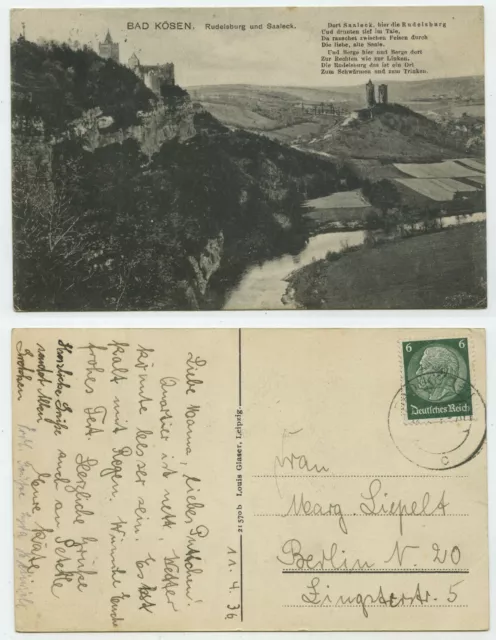 BAD KÖSEN. Rudelsburg und Saaleck.
Dort Saaleck, hier die Rudelsburg
Und drunten tief im Tale,
Da rauschet zwischen Felsen durch
Die liebe, alte Saale.
Und Berge hier und Berge dort
Zur Rechten wie zur Linken,
Die Rudelsburg das ist ein Ort
Zum Schwärmen und zum Trinken.
11.4.36
Liebe Mama, liebes Puttchen!
Quartier ist nett, Wetter
könnte besser sein. Es ist
kalt mit Regen. Wünsche Euch
frohes Fest. Herzliche Grüße
auch an
Eure Käte
Herzliche Grüße
sendet Allen
Gretchen
Herzl. Grüße
21570b Louis Glaser, Leipzig.
6 6
Deutsches Reich
Frau
Marg. Liepelt
Berlin N. 20
Zingsterstr. 5